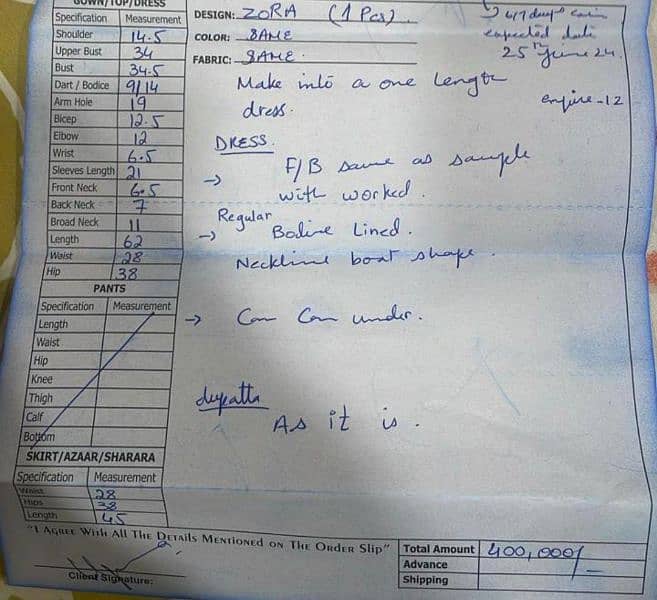 GOWN/TOP/DRESS
Specification Measurement
Shoulder 14.5
Upper Bust 34
Bust 34.5
Dart / Bodice 9/14
Arm Hole 19
Bicep 12.5
Elbow 12
Wrist 6.5
Sleeves Length 21
Front Neck 6.5
Back Neck 7
Broad Neck 11
Length 62
Waist 28
Hip 38
PANTS
Specification Measurement
Length
Waist
Hip
Knee
Thigh
Calf
Bottom
SKIRT/AZAAR/SHARARA
Specification Measurement
Waist 28
Hips 38
Length 45
DESIGN: ZORA (1 Pcs).
COLOR: SAME
FABRIC: SAME.
expected date
25th June 24.
Make into a one length
dress.
DRESS.
→ F/B same as sample
with worked.
Regular
→ Bodice Lined.
Neckline boat shape.
→ Can Can under.
dupatta
As it is.
"I Agree With All The Details Mentioned on The Order Slip"
Client Signature:
Total Amount 400,000/-
Advance
Shipping